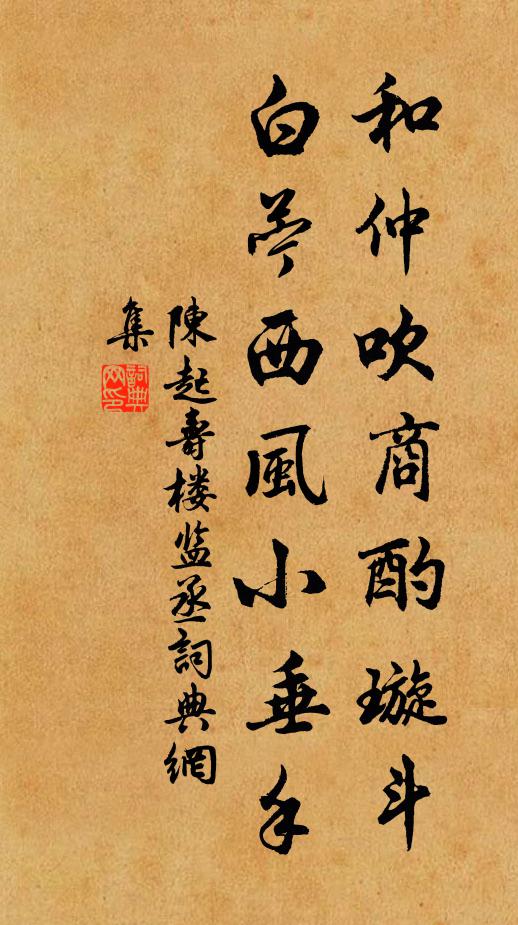 和仲吹商酌璇斗
白苎西風小垂手
陳起壽楼监丞詞典網
集
詞典網印